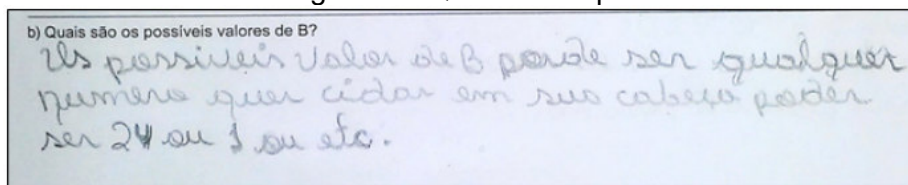 b) Quais são os possíveis valores de B?
Us possiveis Valor de B pode ser qualquer
numero quer cidar em sua cabeça poder
ser 24 ou 1 ou etc.